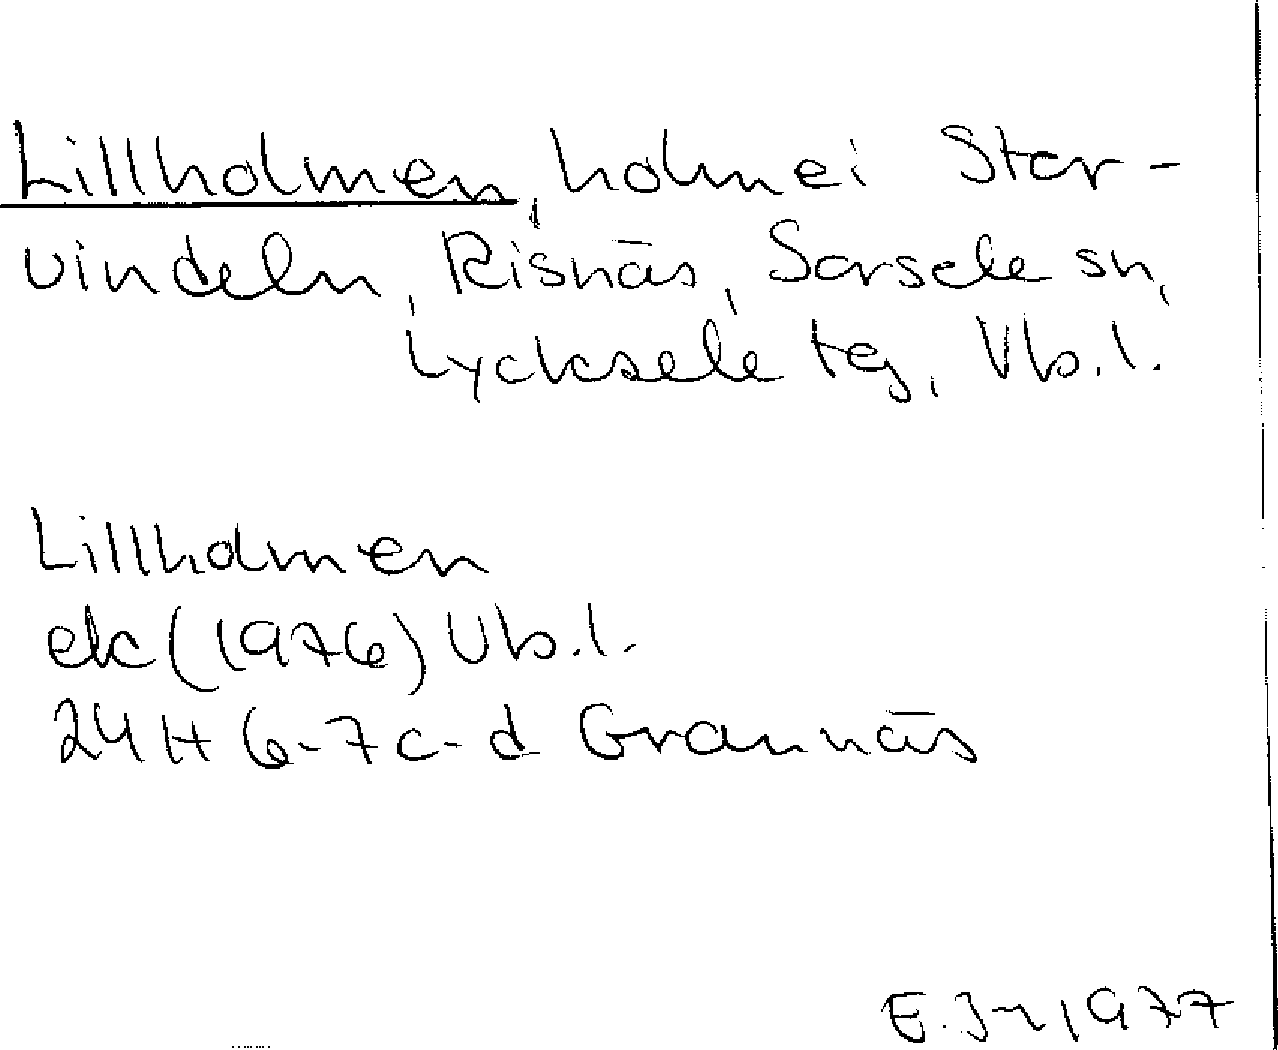 Lillholmen, holme i Stor-
vindeln, Risnäs, Sorsele sn,
Lycksele tg, Vb. l.
Lillholmen
ek (1976) Vb. l.
24 H 6-7 c-d Grannäs
E. Jn 1977